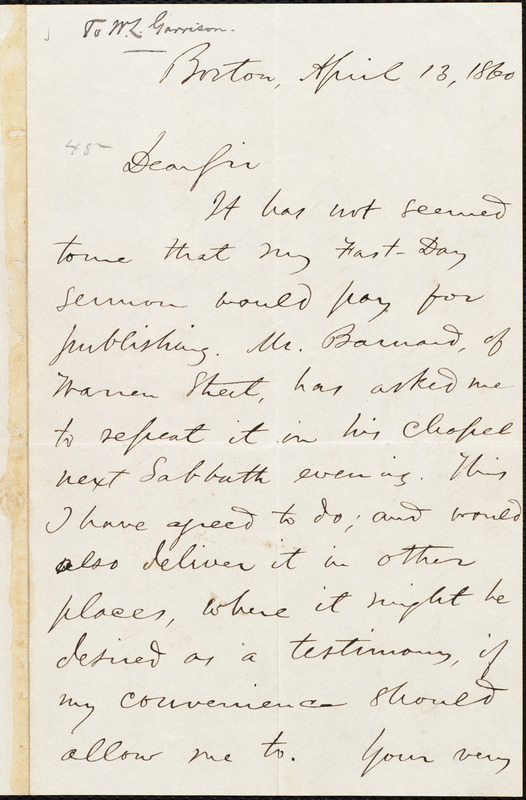 To W.L. Garrison.
Boston, April 13, 1860
45
Dear Sir
It has not seemed
to me that my Fast-Day
sermon would pay for
publishing. Mr. Barnard, of
Warren Street, has asked me
to repeat it in his Chapel
next Sabbath evening. This
I have agreed to do; and would
also deliver it in other
places, where it might be
desired as a testimony, if
my convenience should
allow me to. Your very